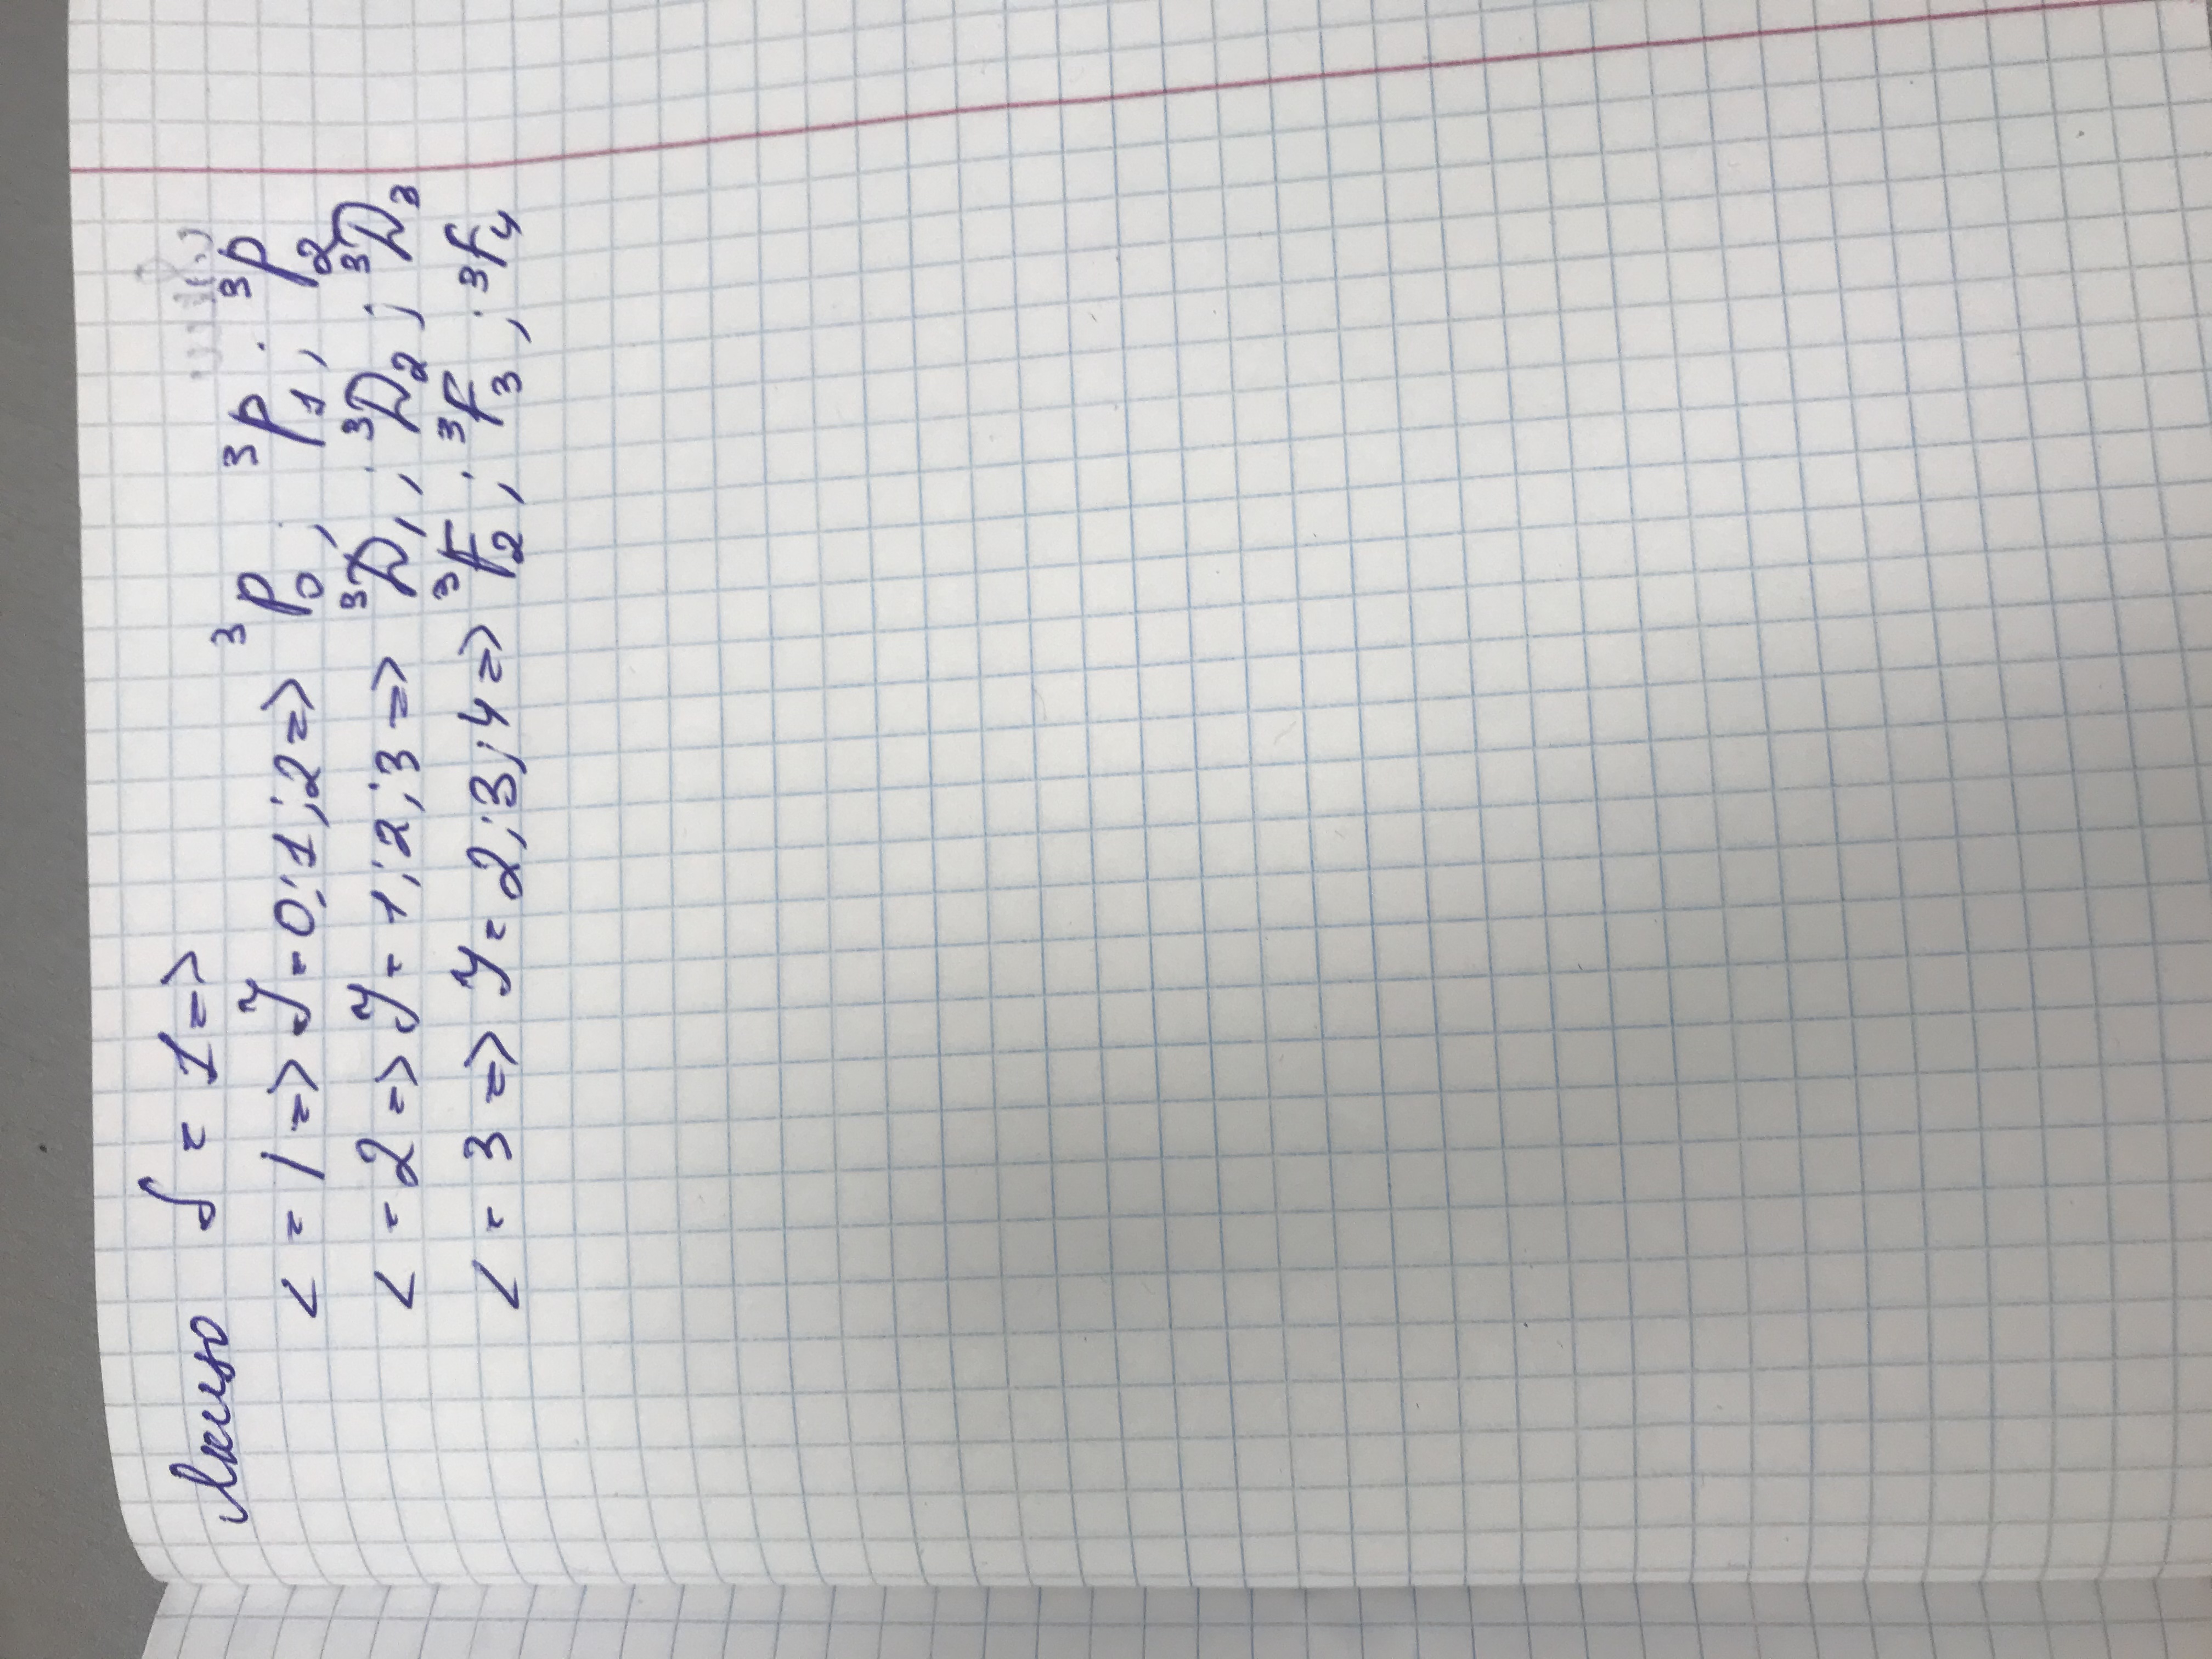 Якщо S = 1 =>
L = 1 => J = 0; 1; 2 => ³P₀; ³P₁; ³P₂
L = 2 => J = 1; 2; 3 => ³D₁; ³D₂; ³D₃
L = 3 => J = 2; 3; 4 => ³F₂; ³F₃; ³F₄